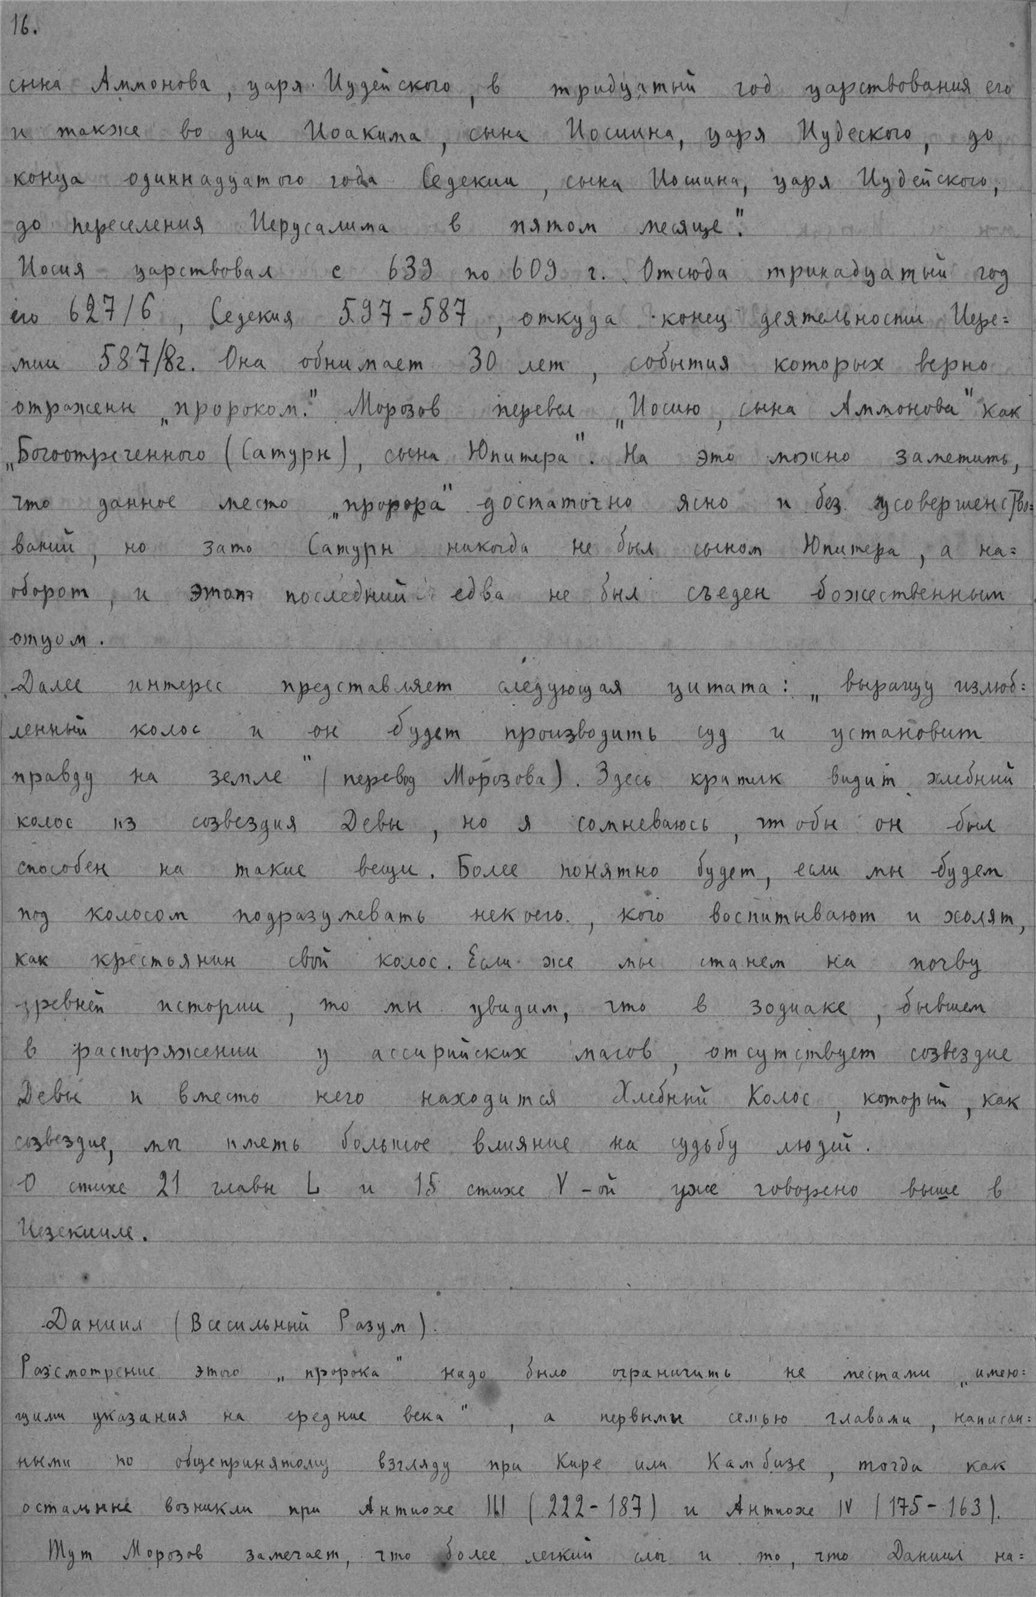 16.
сына Аммонова, царя Иудейского, в тридцатый год царствования его
и также во дни Иоакима, сына Иосиина, царя Иудеского, до
конца одиннадцатого года Седекии, сына Иосиина, царя Иудейского,
до переселения Иерусалима в пятом месяце".
Иосия царствовал с 639 по 609 г. Отсюда тринадцатый год
его 627/6, Седекия 597-587, откуда конец деятельности Иере=
мии 587/8г. Она обнимает 30 лет, события которых верно
отражены „пророком." Морозов перевел „Иосию, сына Аммонова" как
„Богоотреченного (Сатурн), сына Юпитера". На это можно заметить,
что данное место „пророра" достаточно ясно и без усовершенство=
ваний, но зато Сатурн никогда не был сыном Юпитера, а на=
оборот, и этот последний едва не был съеден божественным
отцом.
Далее интерес представляет следующая цитата: „выращу излюб=
ленный колос и он будет производить суд и установит
правду на земле" (перевод Морозова). Здесь критик видит хлебный
колос из созвездия Девы, но я сомневаюсь, чтобы он был
способен на такие вещи. Более понятно будет, если мы будем
под колосом подразумевать некоего, кого воспитывают и холят,
как крестьянин свой колос. Если же мы станем на почву
древней истории, то мы увидим, что в зодиаке, бывшем
в распоряжении у ассирийских магов, отсутствует созвездие
Девы и вместо него находится Хлебный Колос, который, как
созвездие, мог иметь большое влияние на судьбу людей.
О стихе 21 главы L и 15 стихе V-ой уже говорено выше в
Иезекииле.
Даниил (Всесильный Разум).
Разсмотрение этого „пророка" надо было ограничить не местами „имею=
щими указания на средние века", а первыми семью главами, написан=
ными по общепринятому взгляду при Кире или Камбизе, тогда как
остальные возникли при Антиохе III (222-187) и Антиохе IV (175-163).
Тут Морозов замечает, что более легкий слог и то, что Даниил на=